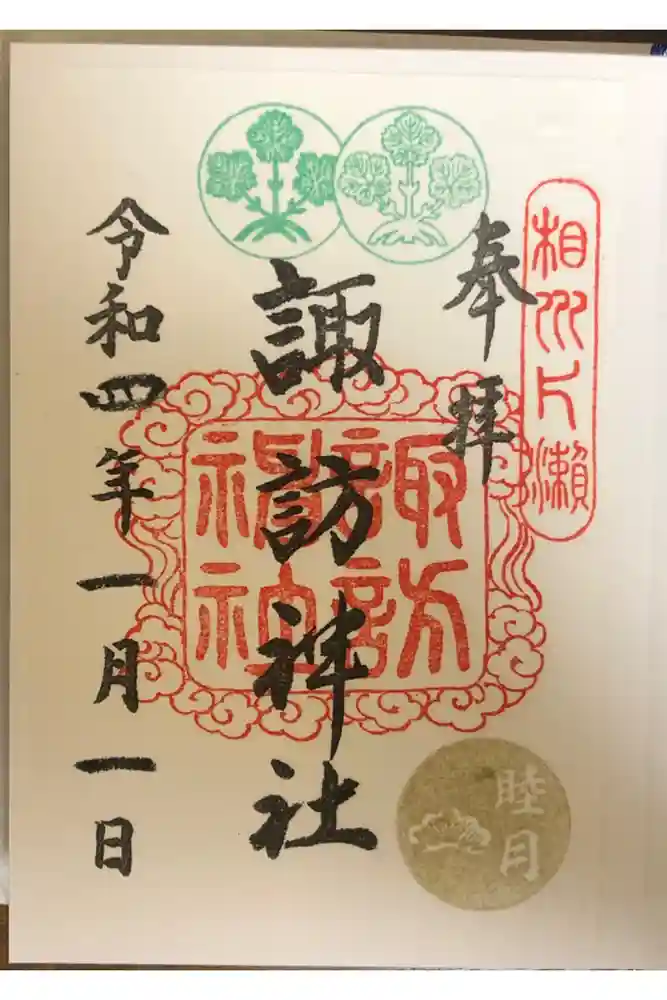 相州片瀬
奉拝
諏訪神社
諏訪
神社
令和四年一月一日
睦月